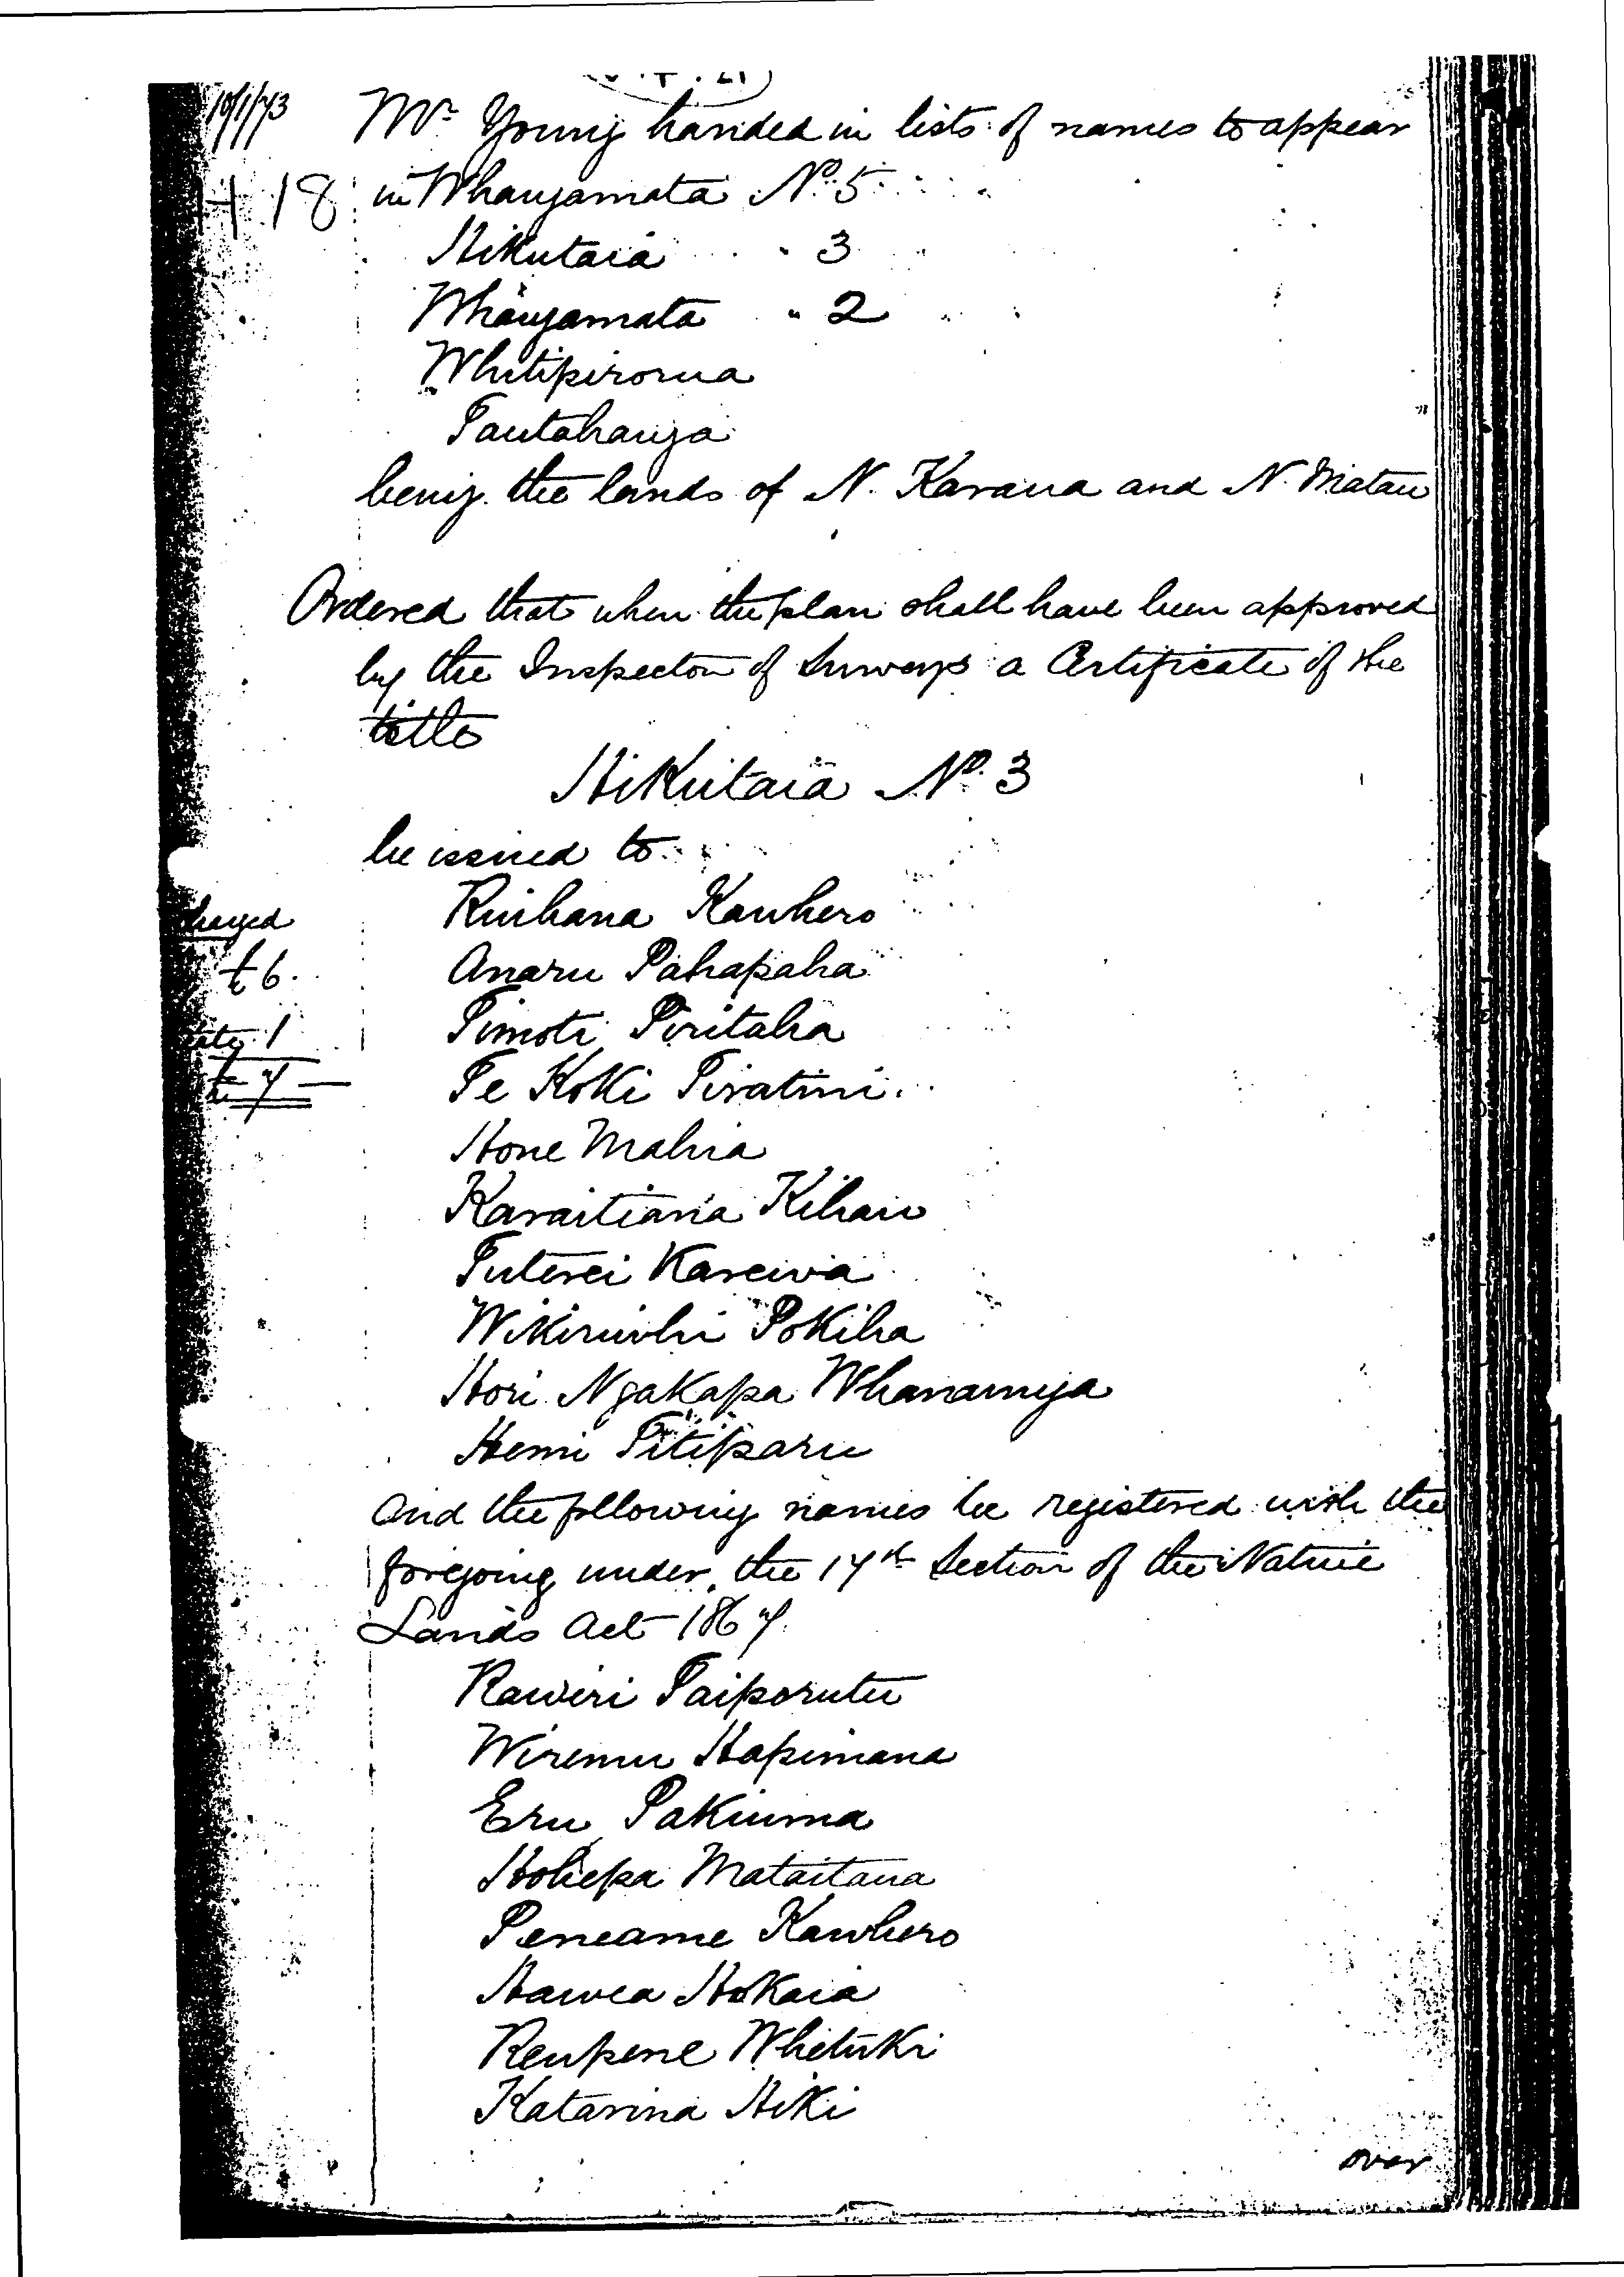 10/1/73
Mr Young handed in lists of names to appear
H 18
in Whangamata No. 5
Hikutaia " 3
Whangamata " 2
Whitipirorua
Tautahanga
being the lands of N. Karaua and N. Matau
Ordered that when the plan shall have been approved
by the Inspector of Surveys a Certificate of the
title
Hikutaia No. 3
be issued to
Ruihana Kawhero
Anaru Pahapaha
£6.
Timoti Piritaha
1
Te Koki Tiratini.
£7 —
Hone Mahia
Karaitiana Kihau
Tuterei Kareiwa
Wikiriwhi Pokiha
Hori Ngakapa Whanaunga
Hemi Titiparu
and the following names be registered with the
foregoing under the 17th Section of the Native
Lands Act 1867.
Rawiri Taiporutu
Wiremu Hapimana
Eru Pakiuma
Hohepa Mataitaua
Peneame Kawhero
Hawea Hokaia
Reupene Whetuki
Katarina Hiki
over